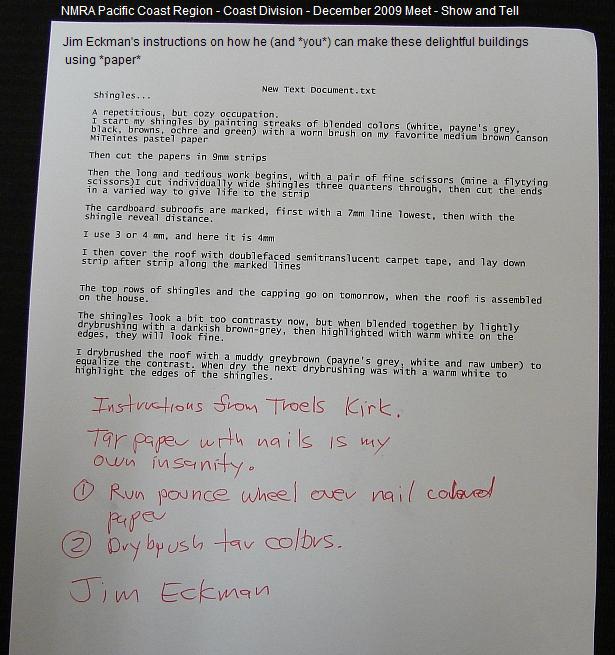 NMRA Pacific Coast Region - Coast Division - December 2009 Meet - Show and Tell
Jim Eckman's instructions on how he (and *you*) can make these delightful buildings
using *paper*
New Text Document.txt
Shingles...
A repetitious, but cozy occupation.
I start my shingles by painting streaks of blended colors (white, payne's grey,
black, browns, ochre and green) with a worn brush on my favorite medium brown Canson
MiTeintes pastel paper
Then cut the papers in 9mm strips
Then the long and tedious work begins, with a pair of fine scissors (mine a flytying
scissors)I cut individually wide shingles three quarters through, then cut the ends
in a varied way to give life to the strip
The cardboard subroofs are marked, first with a 7mm line lowest, then with the
shingle reveal distance.
I use 3 or 4 mm, and here it is 4mm
I then cover the roof with doublefaced semitranslucent carpet tape, and lay down
strip after strip along the marked lines
The top rows of shingles and the capping go on tomorrow, when the roof is assembled
on the house.
The shingles look a bit too contrasty now, but when blended together by lightly
drybrushing with a darkish brown-grey, then highlighted with warm white on the
edges, they will look fine.
I drybrushed the roof with a muddy greybrown (payne's grey, white and raw umber) to
equalize the contrast. when dry the next drybrushing was with a warm white to
highlight the edges of the shingles.
Instructions from Troels Kirk.
Tar paper with nails is my
own insanity.
① Run pounce wheel over nail colored
paper
② Drybrush tar colors.
Jim Eckman